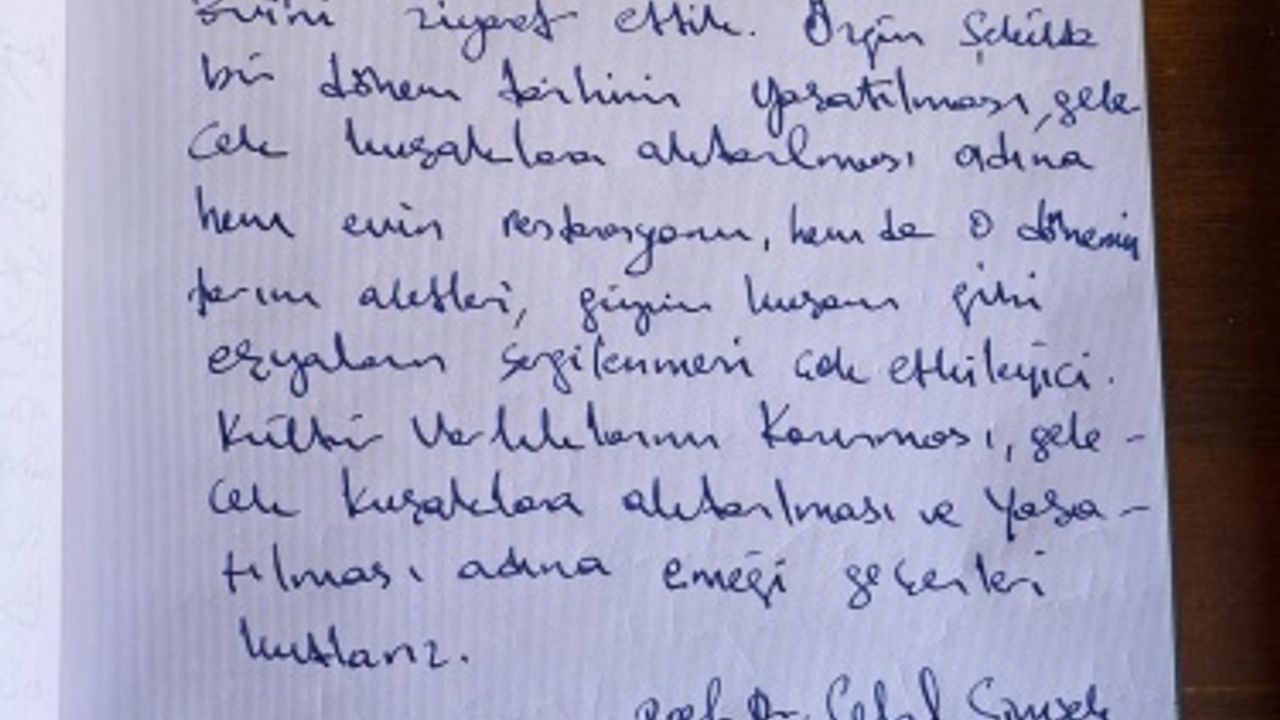 evini ziyaret ettik. Özgün Şekilde
bir dönem tarihinin yaşatılması, gele
cek kuşaklara aktarılması adına
hem evin restorasyonu, hem de o dönemin
tarım aletleri, giyim kuşam gibi
eşyaların sergilenmesi çok etkileyici.
Kültür Varlıklarının Korunması, gele-
cek kuşaklara aktarılması ve Yaşa-
tılması adına emeği geçenleri
kutlarız.
Prof. Dr. Celal Şimşek